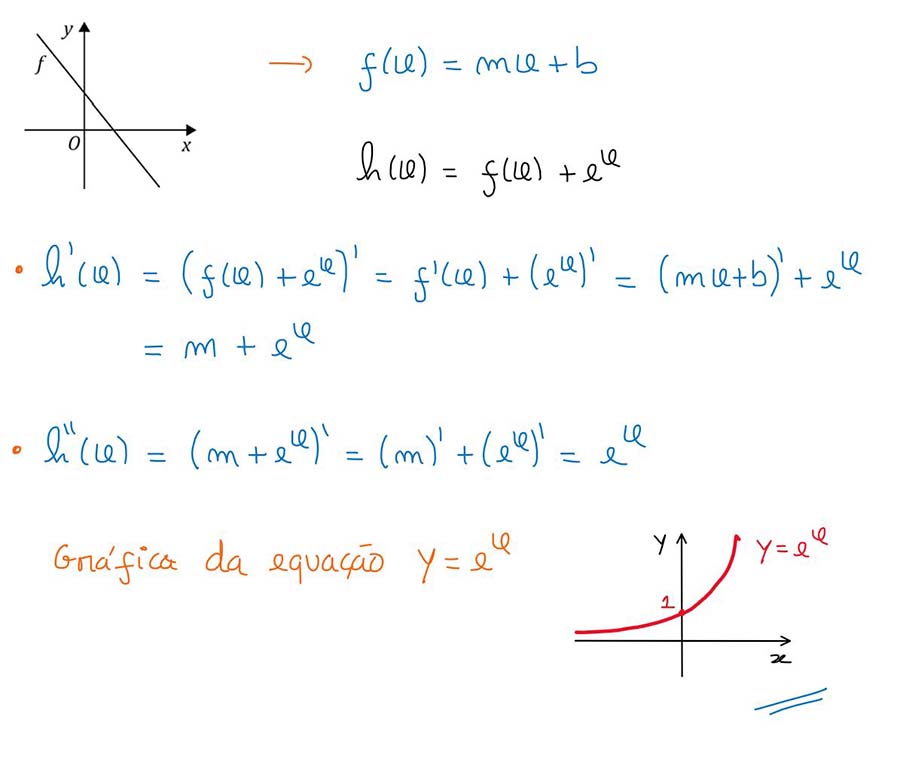 y
f
O
x
→ f(x) = mx + b
h(x) = f(x) + e^x
• h'(x) = (f(x) + e^x)' = f'(x) + (e^x)' = (mx+b)' + e^x
= m + e^x
• h''(x) = (m + e^x)' = (m)' + (e^x)' = e^x
Gráfica da equação y = e^x
y
1
y = e^x
x